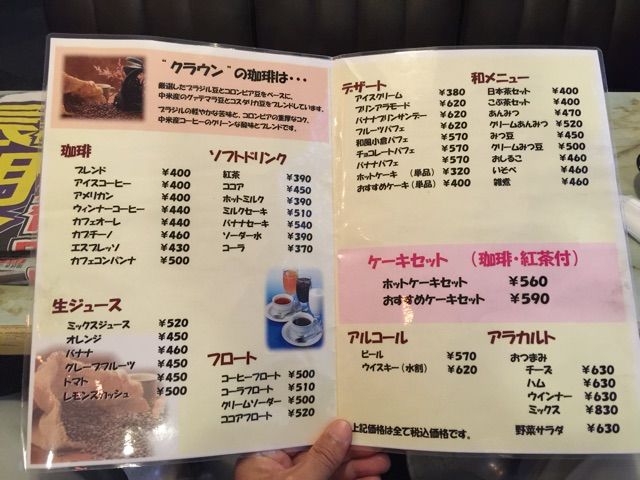 "クラウン"の珈琲は・・・
厳選したブラジル豆とコロンビア豆をベースに、
中米産のグァテマラ豆とコスタリカ豆をブレンドしています。
ブラジルの軽やかな苦味と、コロンビアの重厚なコク、
中米産コーヒーのクリーンな酸味とブレンドです。
珈琲
ブレンド ¥400
アイスコーヒー ¥400
アメリカン ¥400
ウィンナーコーヒー ¥440
カフェオーレ ¥440
カプチーノ ¥460
エスプレッソ ¥430
カフェコンパンナ ¥500
ソフトドリンク
紅茶 ¥390
ココア ¥450
ホットミルク ¥390
ミルクセーキ ¥510
バナナセーキ ¥540
ソーダー水 ¥390
コーラ ¥370
生ジュース
ミックスジュース ¥520
オレンジ ¥450
バナナ ¥460
グレープフルーツ ¥450
トマト ¥450
レモンスカッシュ ¥500
フロート
コーヒーフロート ¥500
コーラフロート ¥510
クリームソーダー ¥500
ココアフロート ¥520
デザート
アイスクリーム ¥380
プリンアラモード ¥620
バナナプリンサンデー ¥620
フルーツパフェ ¥620
和風小倉パフェ ¥570
チョコレートパフェ ¥570
バナナパフェ ¥570
ホットケーキ (単品) ¥320
おすすめケーキ (単品) ¥400
和メニュー
日本茶セット ¥400
こぶ茶セット ¥400
あんみつ ¥470
クリームあんみつ ¥520
みつ豆 ¥450
クリームみつ豆 ¥500
おしるこ ¥460
いそべ ¥460
雑煮 ¥460
ケーキセット (珈琲・紅茶付)
ホットケーキセット ¥560
おすすめケーキセット ¥590
アルコール
ビール ¥570
ウイスキー(水割) ¥620
アラカルト
おつまみ
チーズ ¥630
ハム ¥630
ウインナー ¥630
ミックス ¥830
野菜サラダ ¥630
上記価格は全て税込価格です。